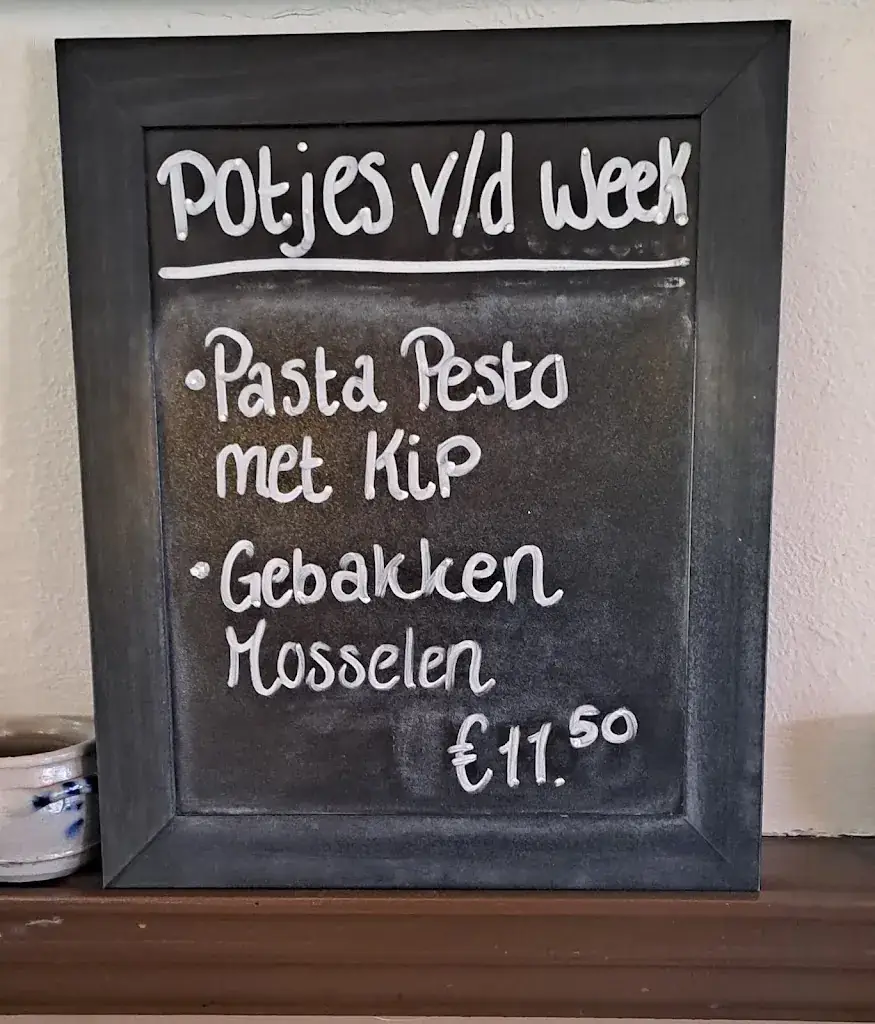 Potjes v/d week
• Pasta Pesto
met Kip
• Gebakken
Mosselen
€11.50